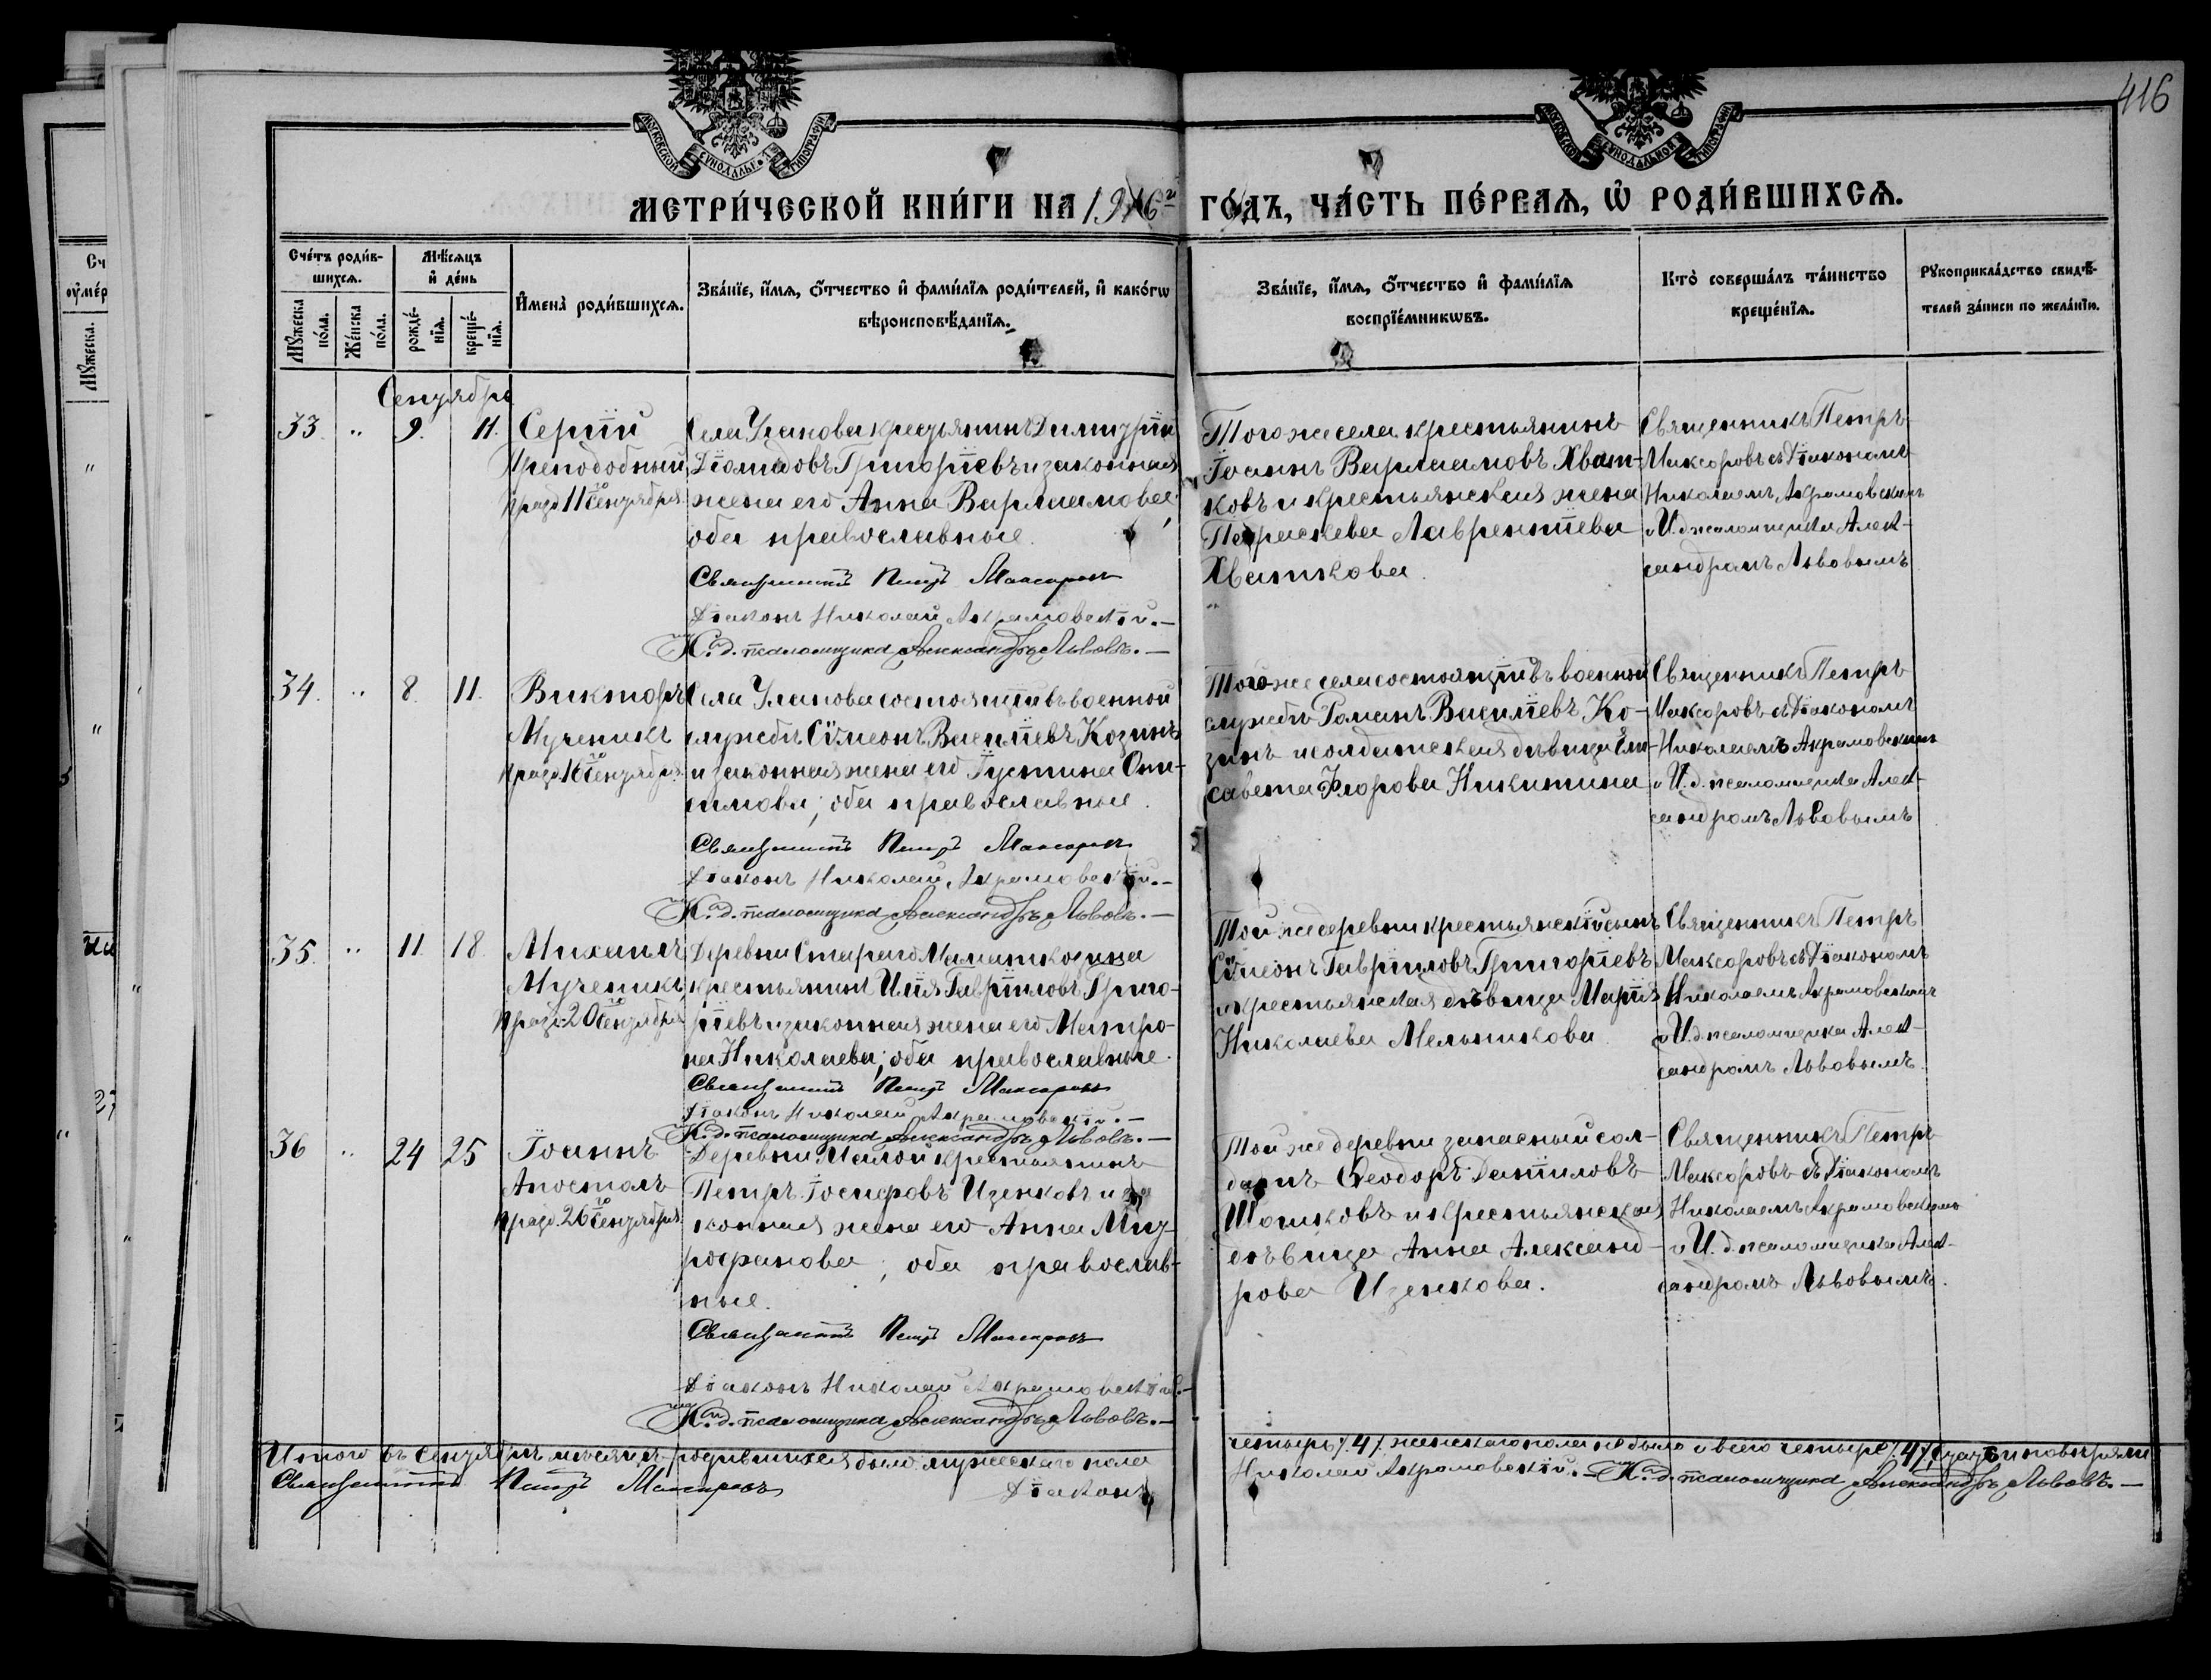 416
МОСКОВСКОЙ СѴНОДАЛЬНОЙ ТИПОГРАФІИ
МОСКОВСКОЙ СѴНОДАЛЬНОЙ ТИПОГРАФІИ
МЕТРИ́ЧЕСКОЙ КНИ́ГИ НА 1916 г ГО́ДЪ, ЧА́СТЬ ПЕ́РВАѦ, Ѡ РОДИ́ВШИХСѦ.
Сче́тъ роди́в-
шихсѧ.
Мꙋ́жеска по́ла.
Же́нска по́ла.
Мѣ́сѧцъ
и де́нь
рожде́-
нїѧ.
креще́-
нїѧ.
И́мена̀ роди́вшихсѧ.
Зва́нїе, и́мѧ, ѻ́тчество и фами́лїѧ роди́телей, и како́гѡ
вѣроисповѣ́данїѧ.
Зва́нїе, и́мѧ, ѻ́тчество и фами́лїѧ
воспрїе́мникѡвъ.
Кто̀ соверша́лъ та́инство
креще́нїѧ.
Рꙋкоприкла́дство свидѣ́-
телей за́писи по жела́нїю.
Сентября
33. " 9. 11.
Сергій
Преподобный
празд. 11го Сентября
Села Уланова крестьянинъ Димитрій
Діомидовъ Григорьевъ и законная
жена его Анна Варлаамова,
оба православные.
Священникъ Петръ Максоровъ
Діаконъ Николай Акрамовскій.—
И. д. псаломщика Александръ Львовъ.—
Того же села крестьянинъ
Іоаннъ Варлаамовъ Хват-
ковъ и крестьянская жена
Параскева Лаврентіева
Хваткова.
Священникъ Петръ
Максоровъ съ Діакономъ
Николаемъ Акрамовскимъ
и И. д. псаломщика Алек-
сандромъ Львовымъ
34. " 8. 11.
Викторъ
Мученикъ
празд. 16го Сентября
Села Уланова состоящій въ военной
службѣ Сѵмеонъ Василіевъ Козинъ
и законная жена его Іустина Они-
симова; оба православные.
Священникъ Петръ Максоровъ
Діаконъ Николай Акрамовскій.—
И. д. псаломщика Александръ Львовъ.—
Того же села состоящій въ военной
службѣ Романъ Василіевъ Ко-
зинъ и солдатская дѣвица Ели-
савета Флорова Никитина
Священникъ Петръ
Максоровъ съ Діакономъ
Николаемъ Акрамовскимъ
и И. д. псаломщика Алек-
сандромъ Львовымъ
35. " 11. 18.
Михаилъ
Мученикъ
празд. 20го Сентября
Деревни Стараго
крестьянинъ Илія Гавріиловъ Григо-
ріевъ и законная жена его Матро-
на Николаева; оба православные.
Священникъ Петръ Максоровъ
Діаконъ Николай Акрамовскій.—
И. д. псаломщика Александръ Львовъ.—
Той же деревни крестьянскій сынъ
Сѵмеонъ Гавріиловъ Григоріевъ
и крестьянская дѣвица Марія
Николаева Мельникова
Священникъ Петръ
Максоровъ съ Діакономъ
Николаемъ Акрамовскимъ
и И. д. псаломщика Алек-
сандромъ Львовымъ.
36 " 24 25
Іоаннъ
Апостолъ
празд. 26го Сентября
Деревни Малой крестьянинъ
Петръ Іосифовъ Изенковъ и за-
конная жена его Анна Мит-
рофанова; оба православ-
ные.
Священникъ Петръ Максоровъ
Діаконъ Николай Акрамовскій.—
И. д. псаломщика Александръ Львовъ.—
Той же деревни запасный сол-
датъ Ѳеодоръ Даніиловъ
Шошковъ и крестьянская
дѣвица Анна Александ-
рова Изенкова.
Священникъ Петръ
Максоровъ съ Діакономъ
Николаемъ Акрамовскимъ
и И. д. псаломщика Алек-
сандромъ Львовымъ.
Итого въ Сентябрѣ мѣсяцѣ родившихся было мужескаго пола
четыре /4/ женскаго пола не было а всего четыре /4/
Священникъ Петръ Максоровъ Діаконъ
Николай Акрамовскій.— И. д. псаломщика Александръ Львовъ.—